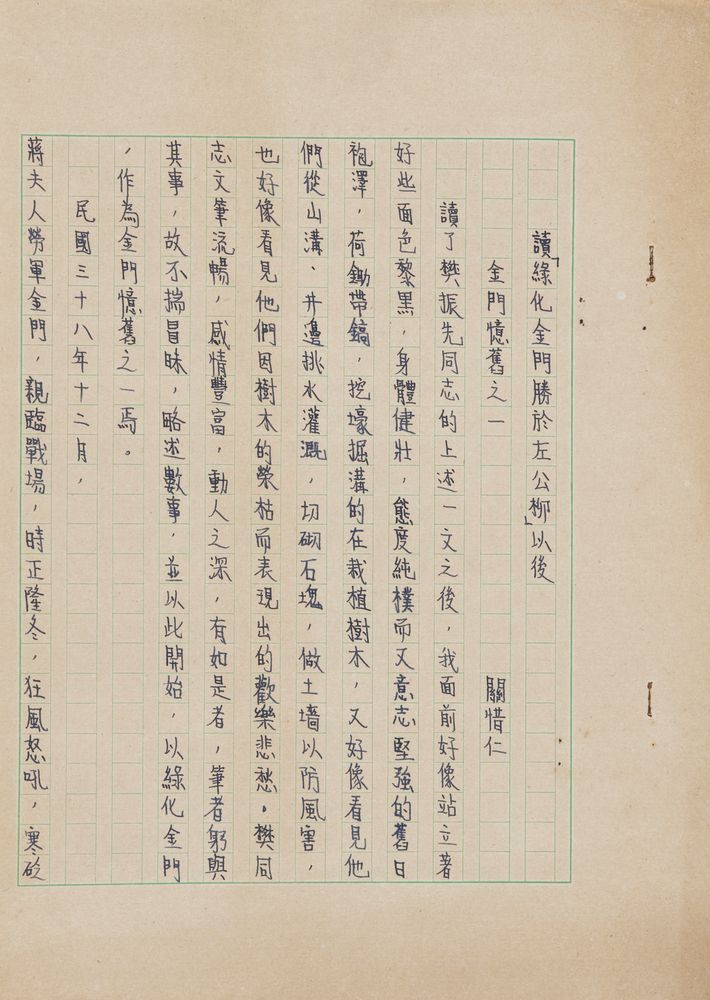 讀「綠化金門勝於左公柳」以後
金門憶舊之一　關惜仁
讀了樊振先同志的上述一文之後，我面前好像站立著
好些面色黎黑，身體健壯，態度純樸而又意志堅強的舊日
袍澤，荷鋤帶鎬，挖壕掘溝的在栽植樹木，又好像看見他
們從山溝、井邊挑水灌溉，切砌石塊，做土墻以防風害，
也好像看見他們因樹木的榮枯而表現出的歡樂悲愁。樊同
志文筆流暢，感情豐富，動人之深，有如是者，筆者躬與
其事，故不揣冒昧，略述數事，並以此開始，以綠化金門
，作為金門憶舊之一焉。
民國三十八年十二月，
蔣夫人勞軍金門，親臨戰場，時正隆冬，狂風怒吼，寒砭